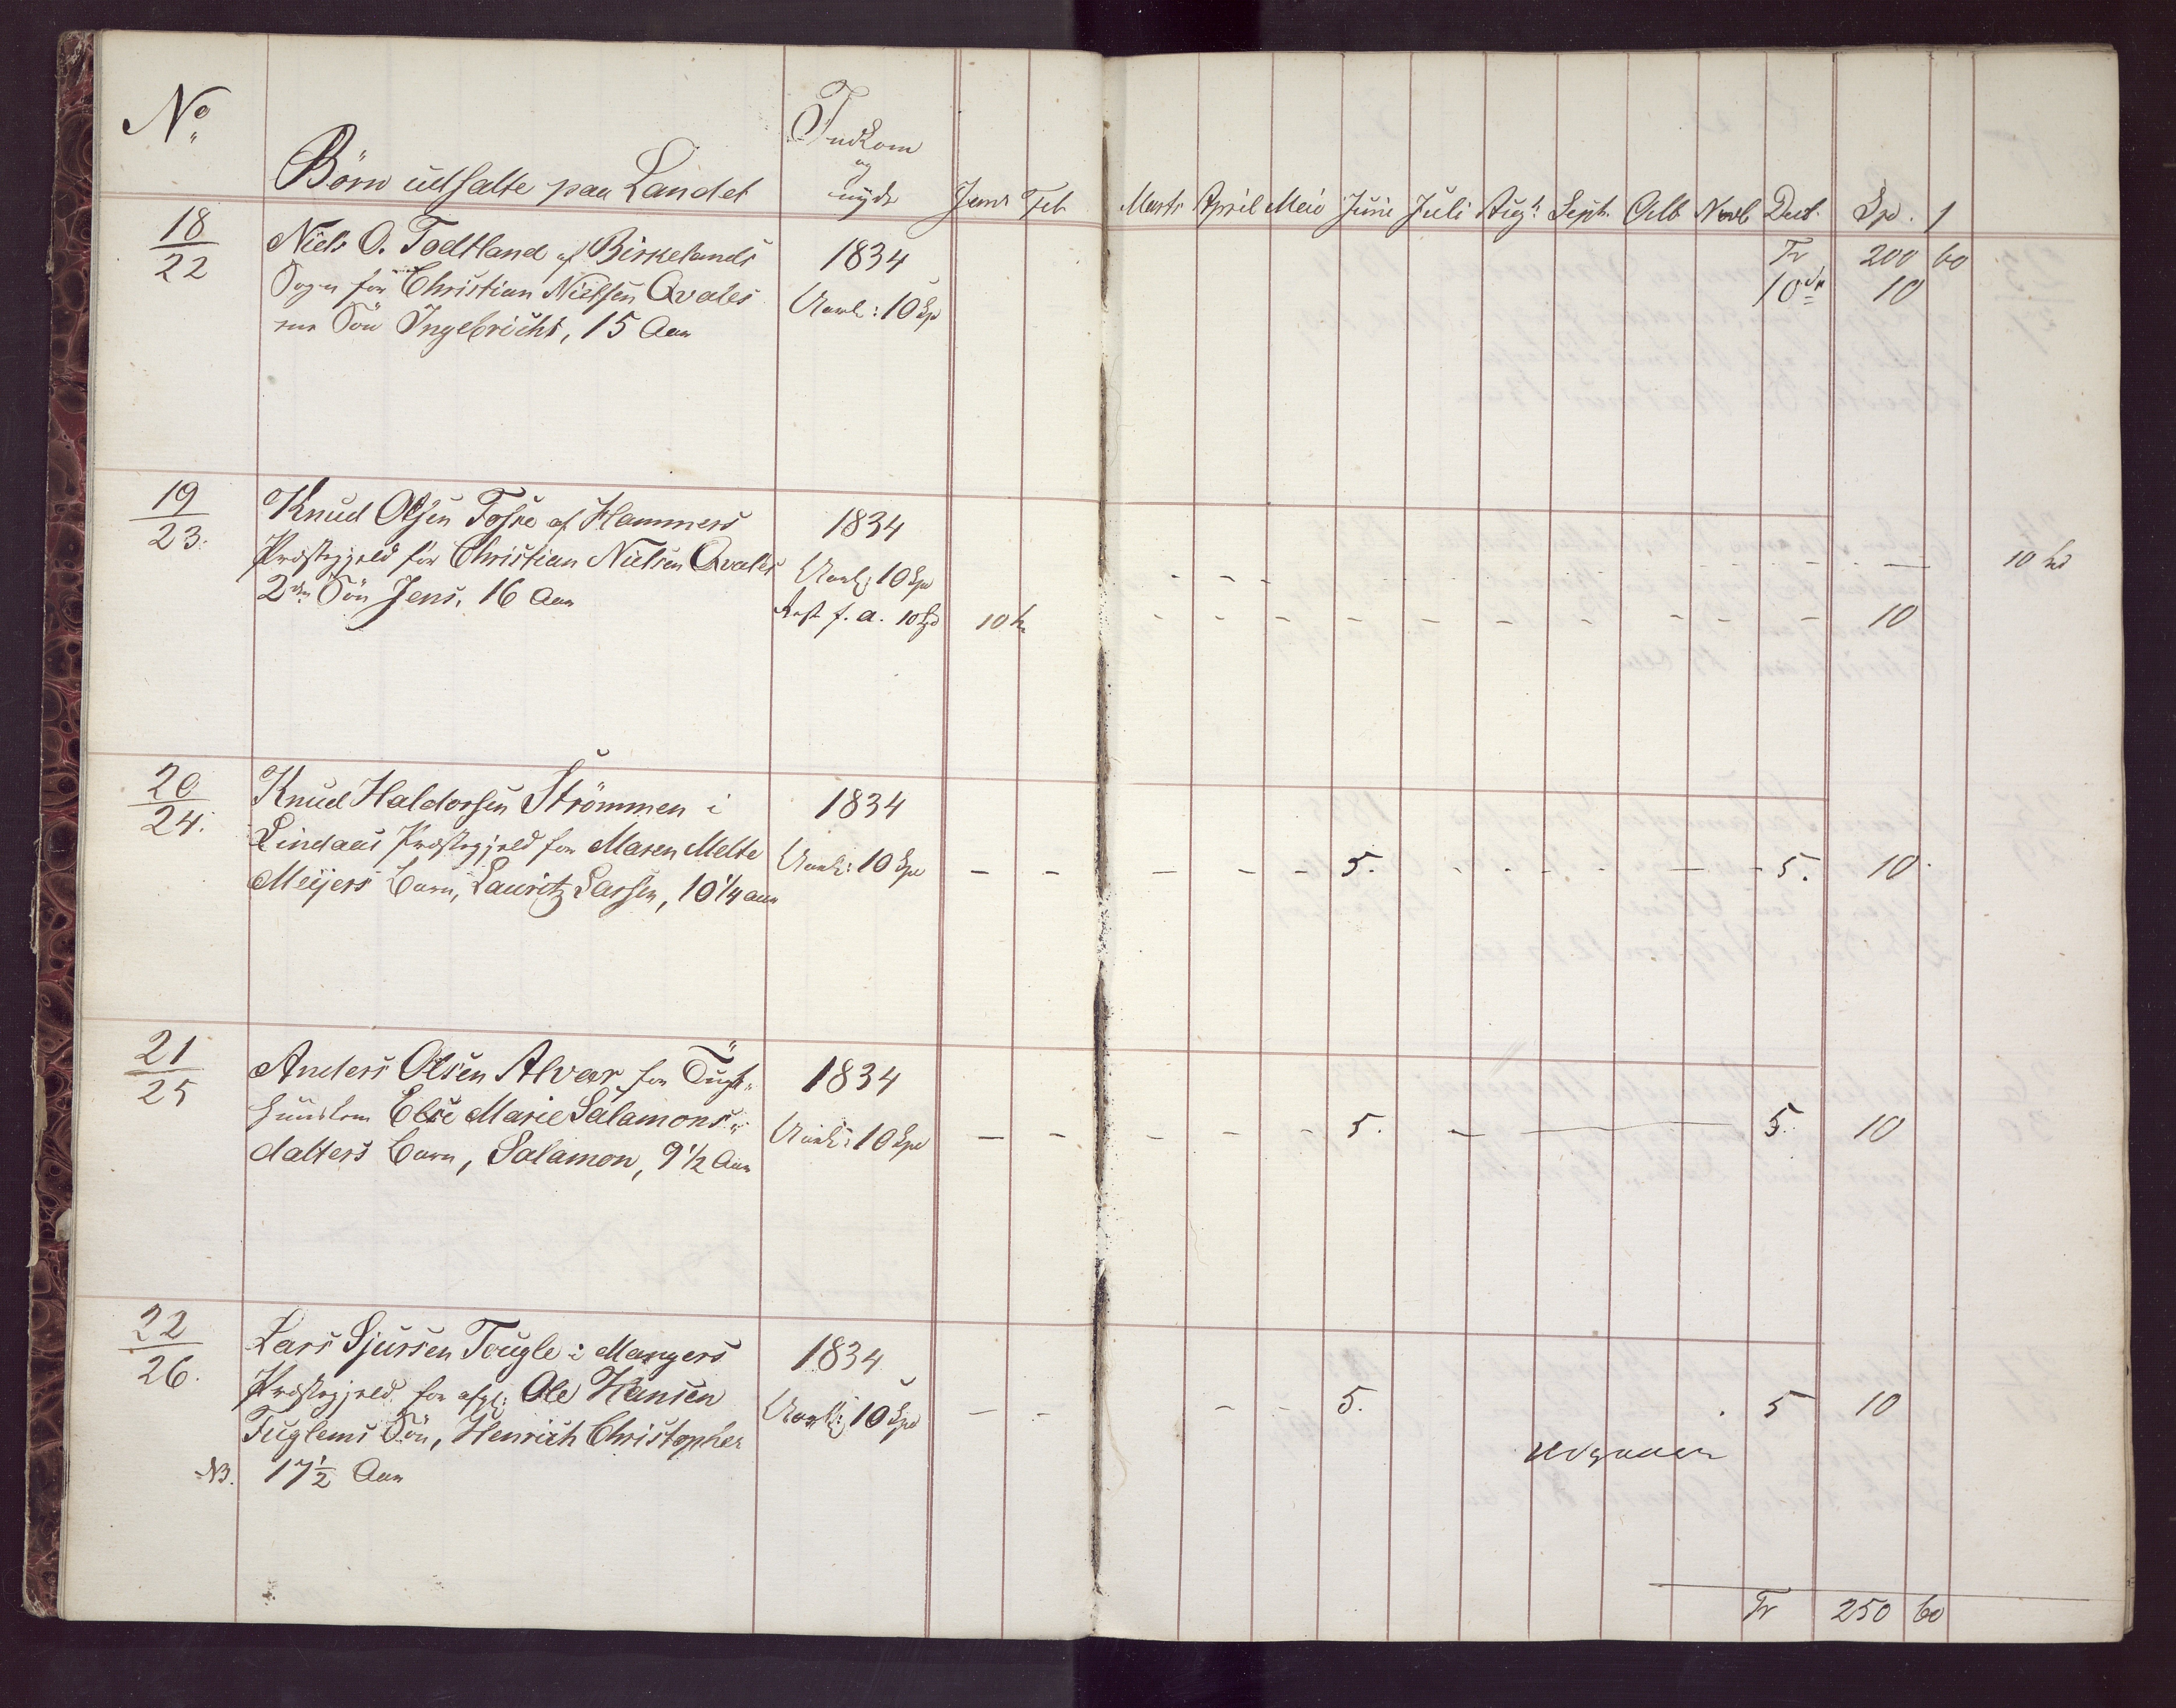 No
Börn udsatte paa Landet
Indkom
og
nyde
Janr Feb Marts April Mai Juni Juli Augt Septr Octb Novb Decb. Spd. /
18
22
Niels O. Todtland af Birkelands
Sogn for Christian Nielsen Qvales
ene Sön Ingebricht, 15 Aar
1834
Aarl: 10 Spd
Tr 200 60
10 10
19
23.
Knud Olsen Fosse af Hammers
Præstegjeld for Christian Nielsen Qvales
2den Sön Jens, 16 Aar
1834
Aarl: 10 Spd
Rest f. a. 10 Spd
10
10
10
20
24.
Knud Haldorsen Strömmen i
Lindaas Præstegjeld for Maren Melte
Meijers Barn, Lauritz Larsen, 10 1/4 aar
1834
Aarl: 10 Spd
- - - - - 5. - - - - - 5. 10
21
25
Anders Olsen Alvær for Tugt-
huuslem Else Marie Salamons-
datters Barn, Salamon, 9 1/2 Aar
1834
Aarl: 10 Spd
- - - - - 5. - 5. 10
22
26.
Lars Sjursen Tougle i Mangers
Præstegjeld for afg: Ole Hansen
Fuglems Sön, Henrich Christopher
NB. 17 1/2 Aar
1834
Aarl: 10 Spd
- - - - 5. 5 10
udgaaer
Tr 250 60